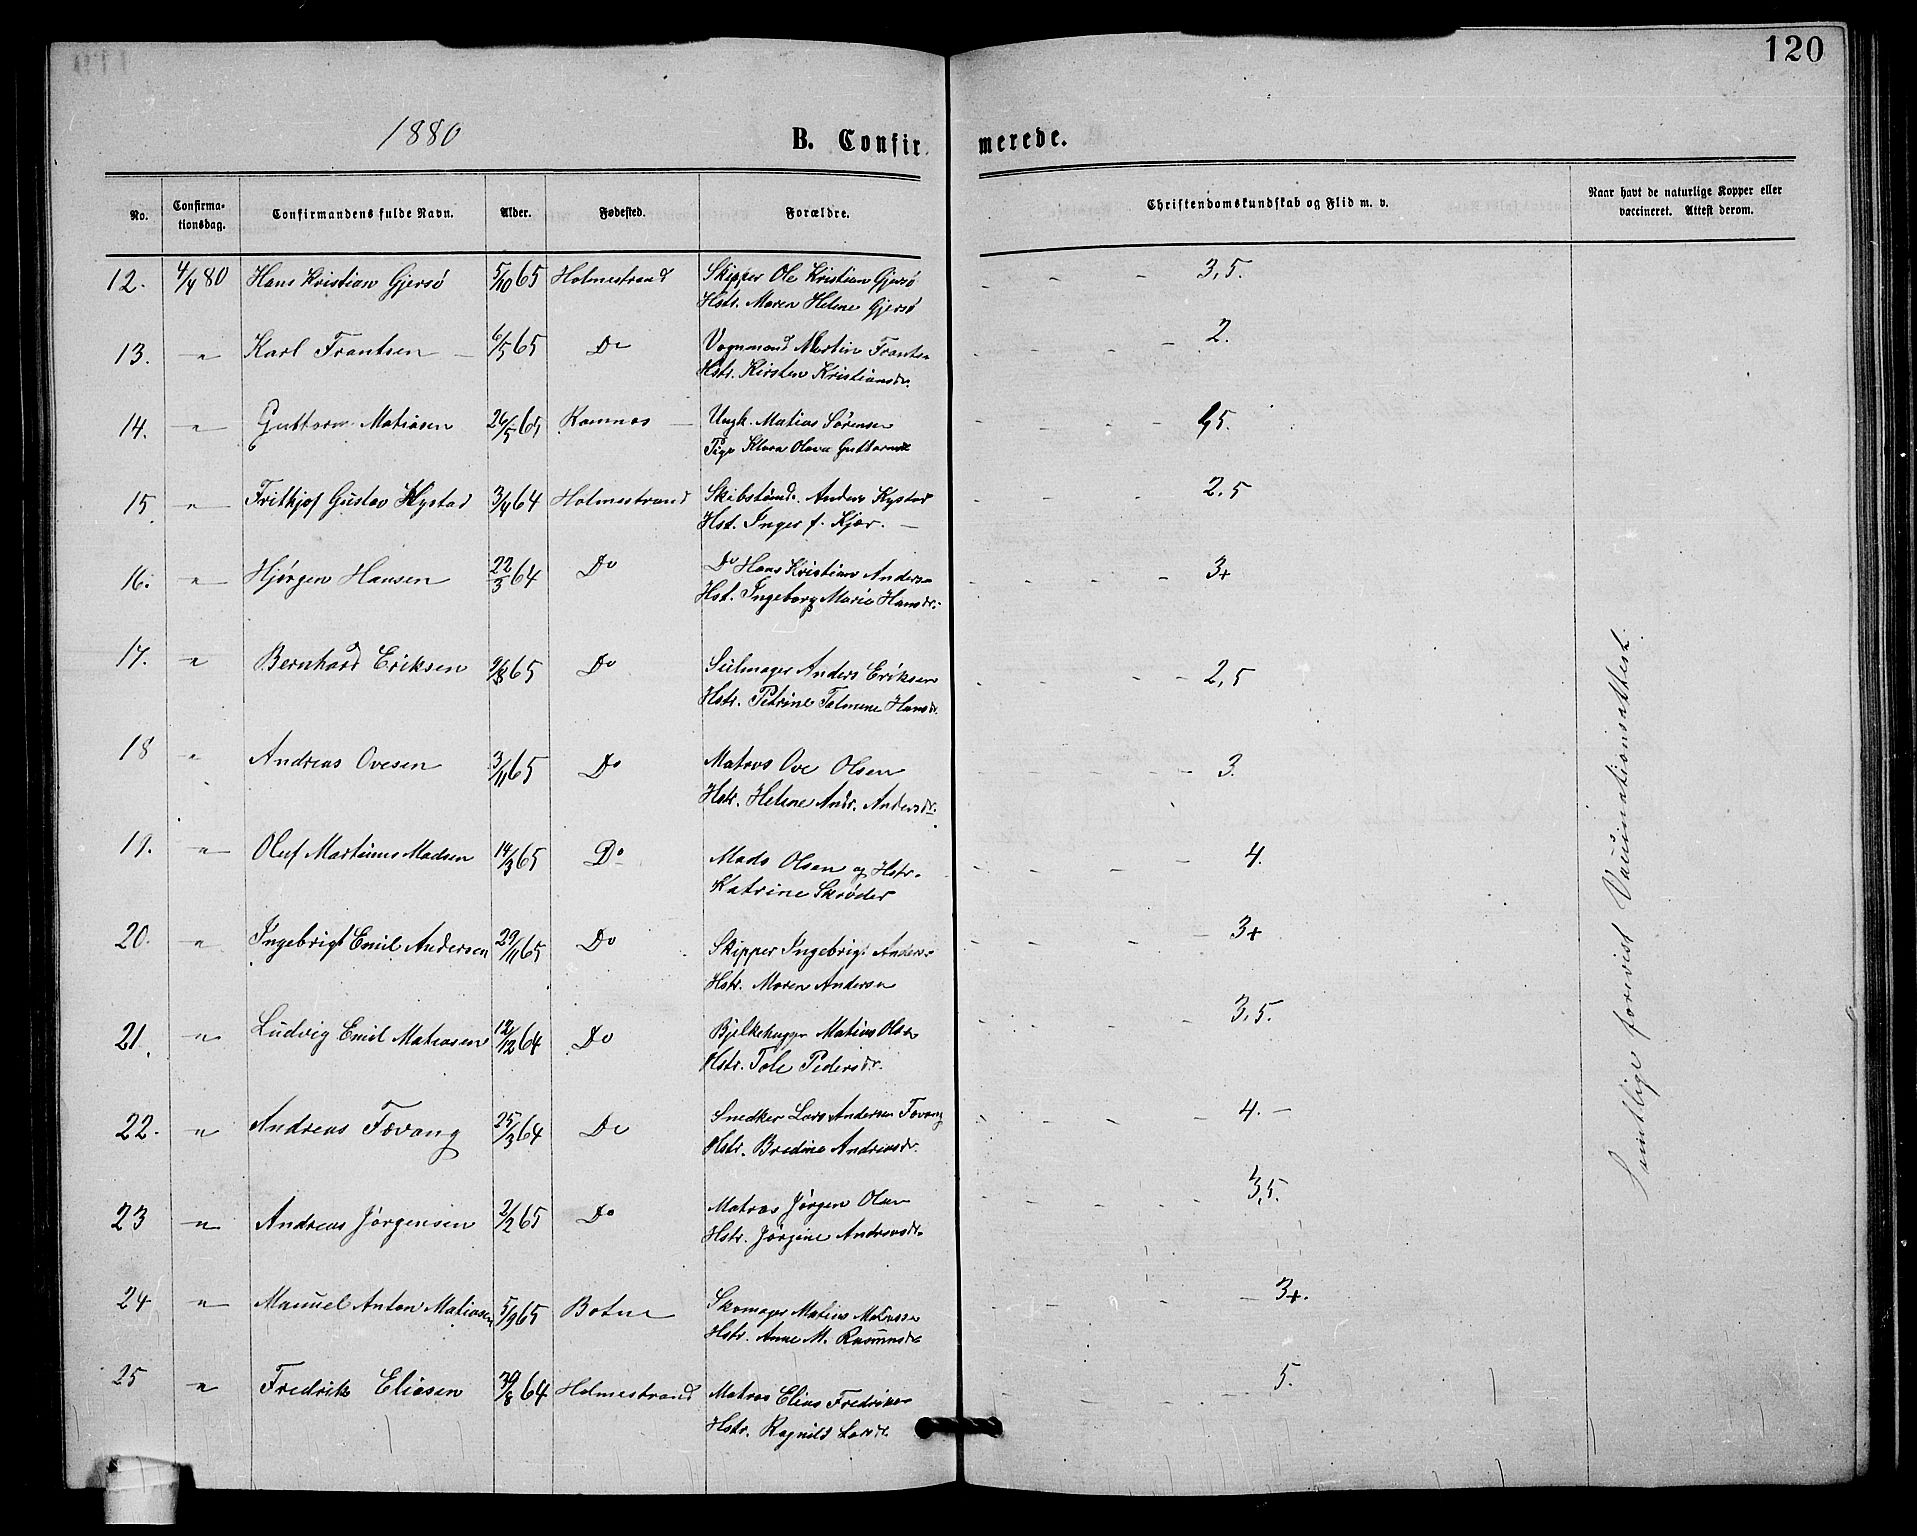 120
1880
B. Confirmerede.
No. Confirmationsdag. Confirmandens fulde Navn. Alder. Fødested. Forældre. Christendomskundskab og Flid m. v. Naar havt de naturlige Kopper eller vaccineret. Attest derom.
12. 4/4 80 Hans Kristian Gjersø 5/10 65 Holmestrand Skipper Ole Kristian Gjersø - - 3,5.
Hstr. Maren Helene Gjersø
13. " Karl Frantsen 6/5 65 Do Vognmand Martin Frants. - - - - 2.
Hstr. Kirsten Kristiansdr.
14. " Guttorm Matiasen 26/5 65 Komnes Ungk. Matias Sørensen - - - -
Pige Klara Olava
15. " Frithjof Gustav Kystad 3/4 64 Holmestrand Anders Kystad - - - - 2,5
Hst. Inger f. Kjær.
16. " Hjørgen Hansen 22/3 64 Do Do Hans Kristian Anders. - - - - 3+
Hst. Ingeborg Marie Hansdr.
17. " Bernhard Eriksen 9/8 65 Do Seilmager Anders Eriksen - - - - 2,5
Hstr. Petrine Tolmine Hansdr.
18 " Andreas Ovesen 3/11 65 Do Matros Ove Olsen - - - - 3.
Hstr. Helene Andr. Andersdr.
19. " Oluf Martinus Madsen 14/3 65 Do Mads Olsen og Hstr. - - - - 4.
Katrine Skrøder
20. " Ingebrigt Emil Andersen 29/11 65 Do Skipper Ingebrigt Anders. - - - - 3+
Hstr. Maren Andersen
21. " Ludvig Emil Matiasen 12/12 64 Do Bjelkehugger Matias Olsen - - - - 3,5.
Hstr. Tole Pedersdr.
22. " Andreas Tøvang 25/3 64 Do Snedker Lars Andersen Tøvang - - - - 4. -
Hstr. Bredine Andreasdr.
23 " Andreas Jørgensen 2/2 65 Do Matros Jørgen Olsen - - - - 3,5.
Hstr. Jørgine Andreasdr.
24 " Manuel Anton Matiasen 5/9 65 Botne Skomager Matias Matiassen - - - - 3+.
Hstr. Anne M. Rasmusdr.
25 " Fredrik Eliasen 30/8 64 Holmestrand Matros Elias Fredriksen - 5.
Hstr. Ragnild Larsdr.
Samtlige forevist Vaccinationsattest.